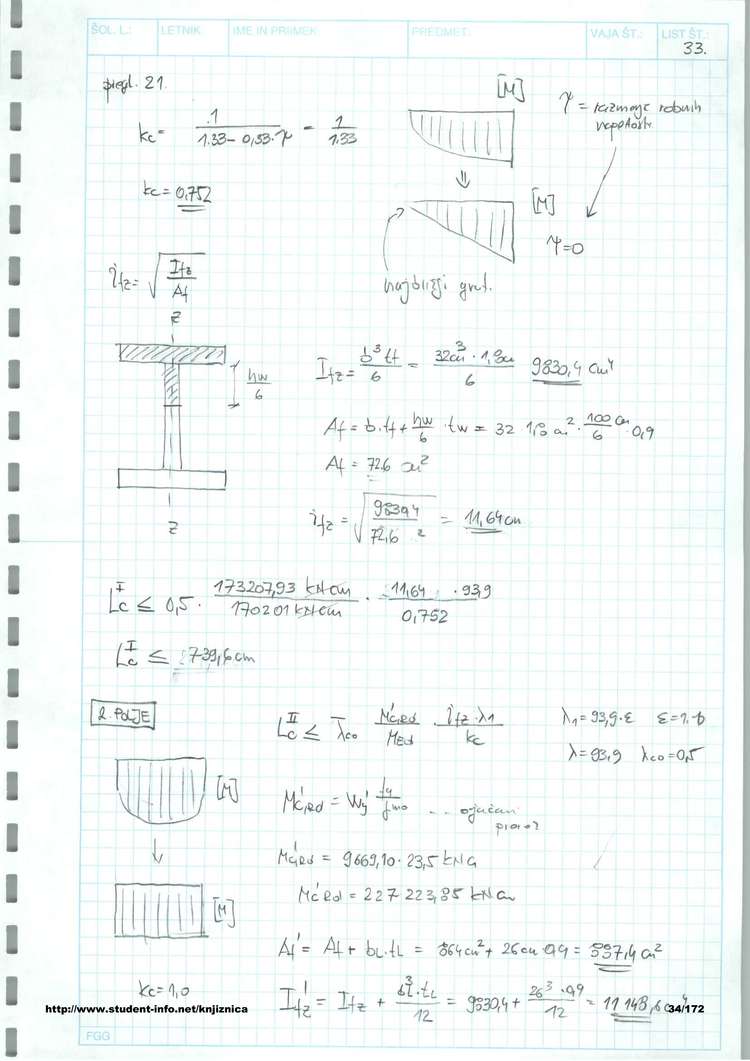 ŠOL. L.: LETNIK: IME IN PRIIMEK: PREDMET: VAJA ŠT.: LIST ŠT.:
33.
pregl. 21.
kc = 1 / (1.33 - 0,33·ψ) = 1 / 1.33
[M]
ψ = razmerje robnih
napetosti
kc = 0,752
[M]
ψ=0
najbližji graf.
ifz = √(Ifz / Af)
z
hw/6
z
Ifz = b³ tf / 6 = 32cm³ · 1,8cm / 6 9830,4 cm⁴
Af = b·tf + hw/6 · tw = 32 · 1,8 cm² · 100cm/6 · 0,9
Af = 72,6 cm²
ifz = √(9830,4 / 72,6 ²) = 11,64 cm
Lc^I ≤ 0,5 · 173207,93 kNcm / 170201 kNcm · 11,64 · 93,9 / 0,752
Lc^I ≤ 739,6 cm
2. POLJE
Lc^II ≤ λ̄co M'c,Rd / MEd · ifz·λ1 / kc
λ1 = 93,9·ε
λ = 93,9 λco = 0,5
[M]
M'c,Rd = Wy' fy / γmo ... ojačan
M'c,Rd = 9669,10 · 23,5 kNcm
M'c,Rd = 227 223,85 kNcm
[M]
Af' = Af + bL·tL = 864cm² + 26cm · 0,9 = 887,4 cm²
kc = 1,0
Ifz' = Ifz + bL³·tL / 12 = 9830,4 + 26³ · 0,9 / 12 = 11 148,6 cm⁴
http://www.student-info.net/knjiznica
34/172
FGG